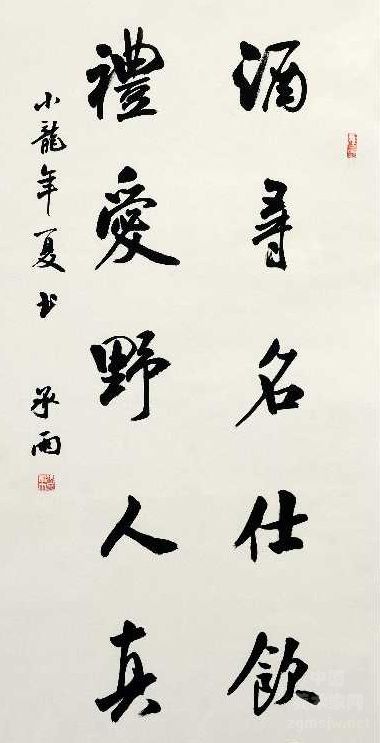 酒尋名仕飲
禮愛野人真
小龍年夏书 承雨
zgmsjw.net